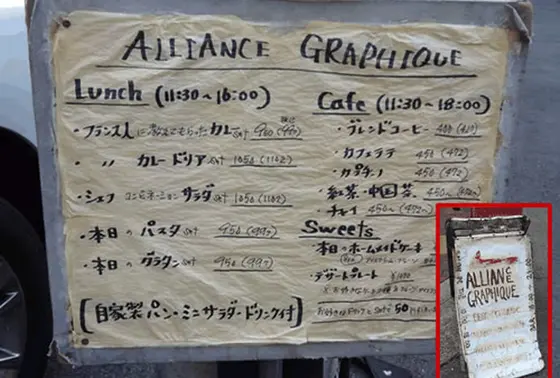 ALLIANCE GRAPHIQUE
Lunch (11:30~16:00)
・フランス人に教えてもらったカレーset 950 (997)
・〃 カレードリアset 1050 (1102)
・シェフコンビネーションサラダset 1050 (1102)
・本日のパスタset 950 (997)
・本日のグラタンset 950 (997)
[自家製パン・ミニサラダ・ドリンク付]
Cafe (11:30~18:00)
・ブレンドコーヒー 400 (420)
・カフェラテ 450 (472)
・カプチーノ 450 (472)
・紅茶・中国茶 450~ (472~)
・チャイ 450~ (472~)
Sweets
・本日のホームメイドケーキ
・デザートプレート
50
ALLIANCE
GRAPHIQUE